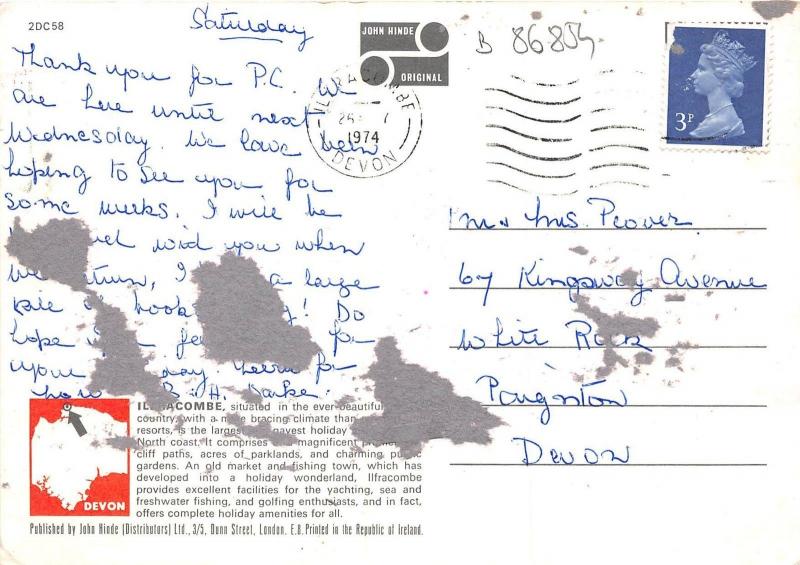 2DC58
Saturday
JOHN HINDE
ORIGINAL
B 86854
Thank you for P.C. We
are here until next
Wednesday. We have been
hoping to see you for
some weeks. I will be
wid you when
I a large
book ! Do
hope for
your day. for
now B. H.
ILFRACOMBE
1974
DEVON
3P
Mr & Mrs Peover
67 Kingsway Avenue
White Rock
Paignton
Devon
ILFRACOMBE, situated in the ever-beautiful
country, with a more bracing climate than
resorts, is the largest gayest holiday
North coast. It comprises magnificent
cliff paths, acres of parklands, and charming public
gardens. An old market and fishing town, which has
developed into a holiday wonderland, Ilfracombe
provides excellent facilities for the yachting, sea and
freshwater fishing, and golfing enthusiasts, and in fact,
offers complete holiday amenities for all.
DEVON
Published by John Hinde (Distributors) Ltd., 3/5, Dunn Street, London. E.8. Printed in the Republic of Ireland.